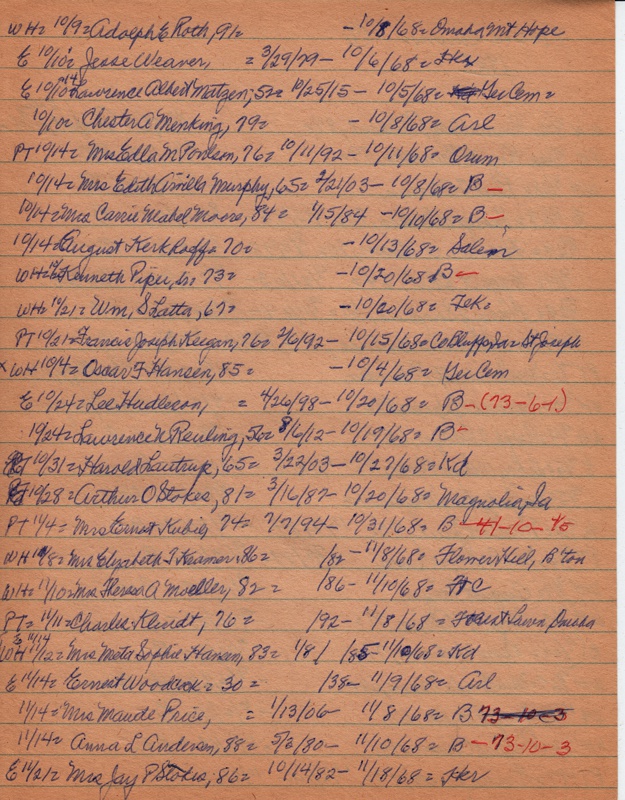 WH= 10/9= Adolph E Roth, 91= - 10/8/68= Omaha Mt Hope
E 10/10= Jesse Weaver, = 3/29/79 - 10/6/68=
E 10/10= 10/14 Lawrence Albert Matzen, 52= 10/25/15 - 10/5/68= GerCem=
10/10= Chester A Menking, 79= - 10/8/68= Arl
PT 10/14= Mrs Edla M Poulsen, 76= 10/11/92 - 10/11/68= Orum
10/14= Mrs Edith Amilla Murphy, 65= 2/21/03 - 10/8/68= B -
10/14= Mrs Carrie Mabel Moore, 84= 1/15/84 - 10/10/68= B -
10/14= August Kerkhoff= 70= - 10/13/68= Salem
WH= Kenneth Piper, sr= 73= - 10/20/68= B -
WH= 10/21= Wm, S Latta, 67= - 10/20/68= Tek=
PT 10/21= Francis Joseph Keegan, 76= 2/6/92 - 10/15/68= Co Bluffs, Ia= St Joseph
x WH 10/4= Oscar F Hansen, 85= - 10/4/68= GerCem
E 10/24= Lee Hudleson, = 4/26/98 - 10/20/68= B - (73-6-1)
10/24= Lawrence N Reuling, 56= 8/6/12 - 10/19/68= B -
10/31= Harold Lautrup, 65= 3/22/03 - 10/27/68= Kd
10/28= Arthur O Stokes, 81= 3/16/87 - 10/20/68= Magnolia, Ia
PT 11/4= Mrs Ernest Kubie, 74= 7/7/94 - 10/31/68= B - 41-10-
WH 11/8= Mrs Elizabeth T Kramer, 86= /82 - 11/8/68= Flower Hill, B'ton
WH= 11/10= Mrs Theresa A Moeller, 82= /86 - 11/10/68= HC
PT= 11/11= Charles Klindt, 76= /92 - 11/8/68= Forest Lawn, Omaha
E 11/14
WH 11/12= Mrs Meta Sophie Hansen, 83= 1/8/ /85 - 11/10/68= Kd
E 11/14= Ernest Woodcock= 30= /38 - 11/9/68= Arl
11/14= Mrs Maude Price, = 1/13/06 - 11/8/68= B 73-10-3
11/14= Anna L Andersen, 88= 5/2/80 - 11/10/68= B - 73-10-3
E 11/21= Mrs Jay P Stokes, 86= 10/14/82 - 11/18/68= Her